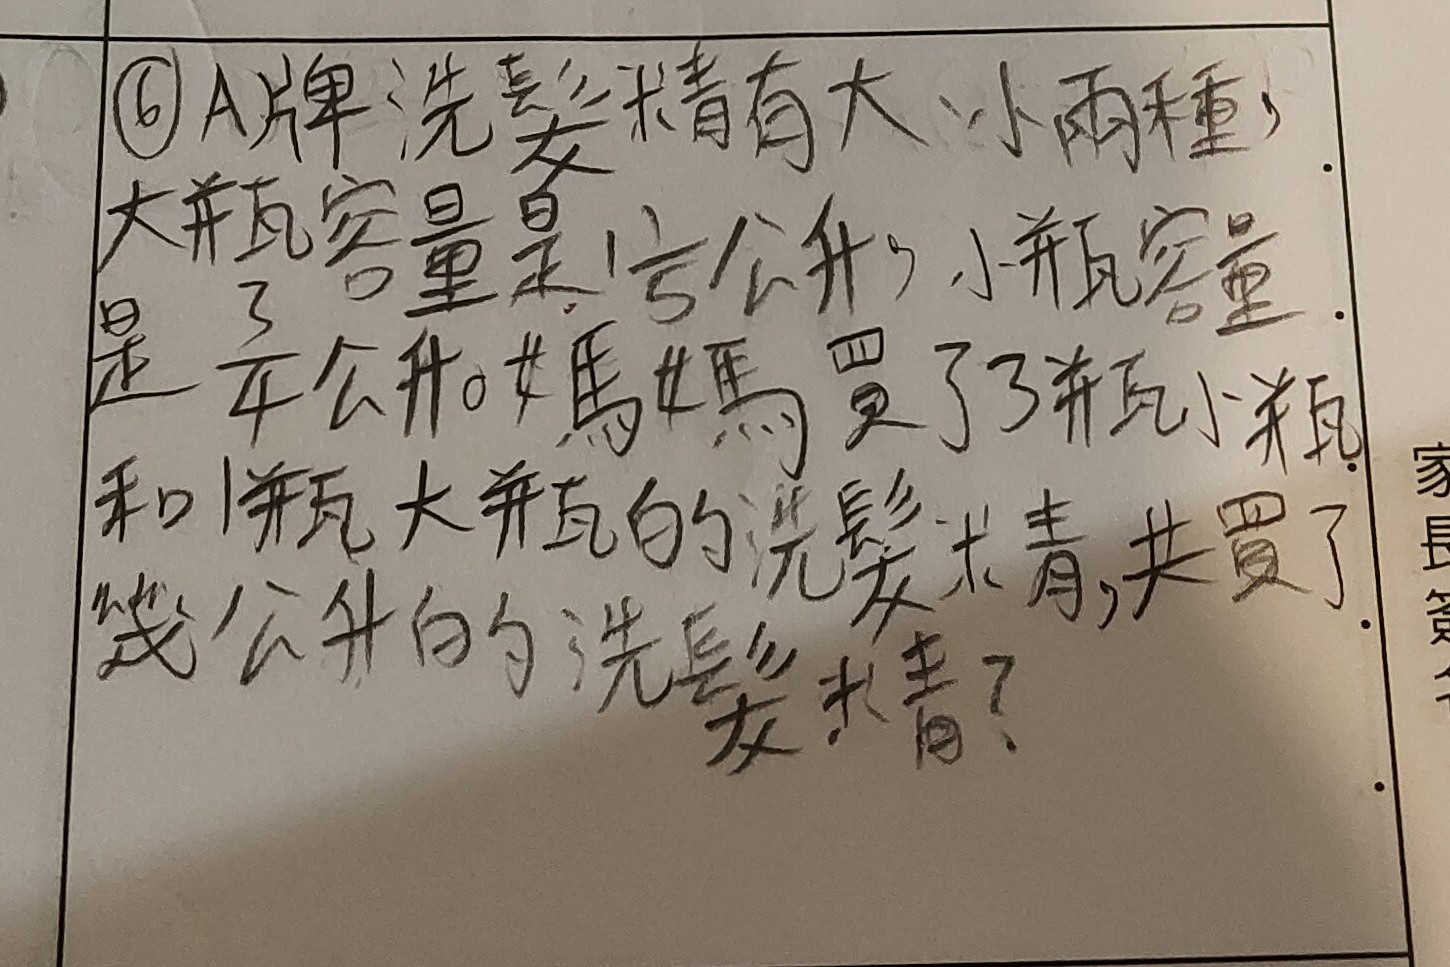 ⑥A牌洗髮精有大、小兩種,
大瓶容量是1⅕公升,小瓶容量
是 3/4公升。媽媽買了3瓶小瓶
和1瓶大瓶的洗髮精,共買了
幾公升的洗髮精?
家長簽名